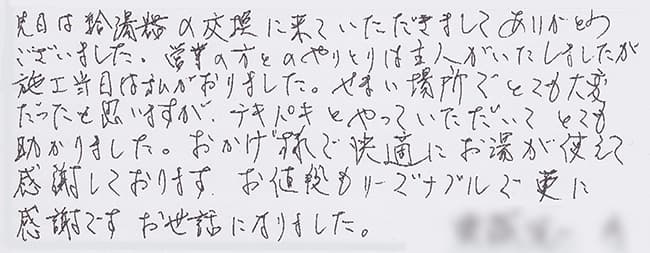 先日は給湯器の交換に来ていただきましてありがとう
ございました。営業の方とのやりとりは主人がいたしましたが
施工当日は私がおりました。せまい場所でとても大変
だったと思いますが、テキパキとやっていただいてとても
助かりました。おかげ様で快適にお湯が使えて
感謝しております。お値段もリーズナブルで更に
感謝です お世話になりました。